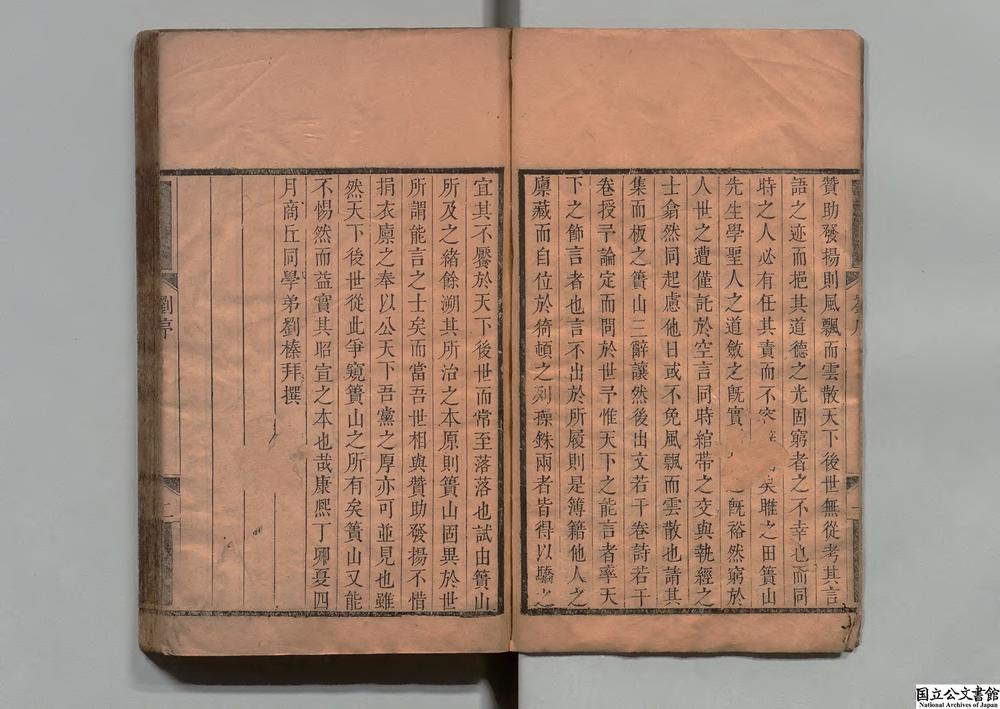 贊助發揚則風飄而雲散天下後世無從考其言
語之迹而挹其道德之光固窮者之不幸也而同
時之人必有任其責而不 矣雎之田簣山
先生學聖人之道斂之旣實 旣裕然窮於
人世之遭僅託於空言同時綰帶之交與執經之
士翕然同起慮他日或不免風飄而雲散也請其
集而板之簣山三辭讓然後出文若干卷詩若干
卷授予論定而問於世予惟天下之能言者率天
下之飾言者也言不出於所履則是簿籍他人之
廩藏而自位於猗頓之列操銖兩者皆得以驕之
宜其不饜於天下後世而常至落落也試由簣山
所及之緒餘溯其所治之本原則簣山固異於世
所謂能言之士矣而當吾世相與贊助發揚不惜
捐衣廩之奉以公天下吾黨之厚亦可並見也雖
然天下後世從此爭窺簣山之所有矣簣山又能
不惕然而益實其昭宣之本也哉康熙丁卯夏四
月商丘同學弟劉榛拜撰
劉序
二
国立公文書館
National Archives of Japan